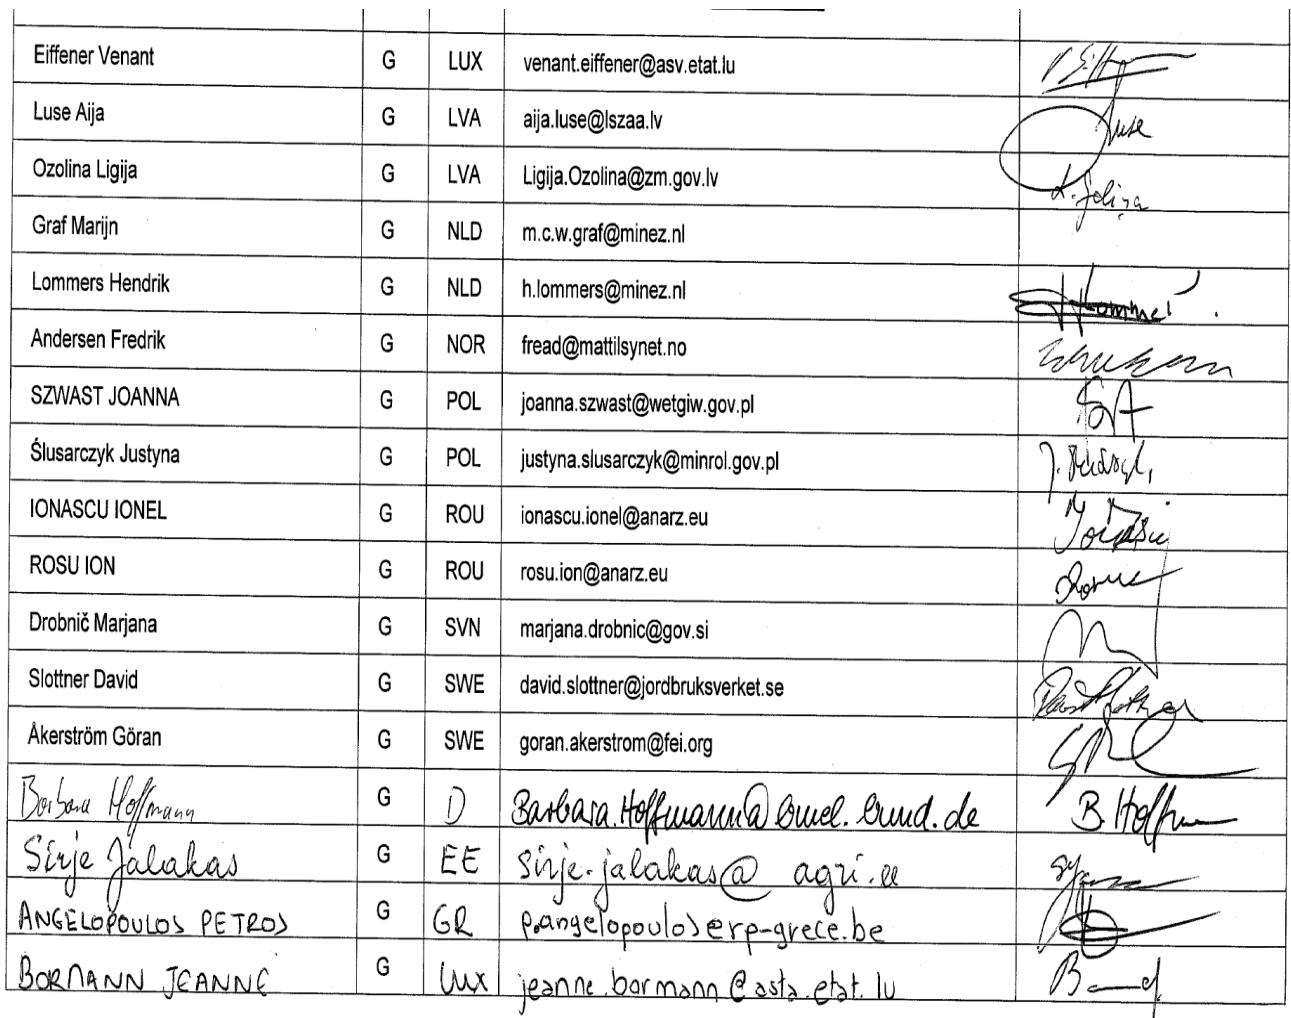 Eiffener Venant G LUX venant.eiffener@asv.etat.lu
Luse Aija G LVA aija.luse@lszaa.lv Luse
Ozolina Ligija G LVA Ligija.Ozolina@zm.gov.lv
Graf Marijn G NLD m.c.w.graf@minez.nl
Lommers Hendrik G NLD h.lommers@minez.nl
Andersen Fredrik G NOR fread@mattilsynet.no
SZWAST JOANNA G POL joanna.szwast@wetgiw.gov.pl
Ślusarczyk Justyna G POL justyna.slusarczyk@minrol.gov.pl
IONASCU IONEL G ROU ionascu.ionel@anarz.eu
ROSU ION G ROU rosu.ion@anarz.eu
Drobnič Marjana G SVN marjana.drobnic@gov.si
Slottner David G SWE david.slottner@jordbruksverket.se
Åkerström Göran G SWE goran.akerstrom@fei.org
Barbara Hoffmann G D Barbara.Hoffmann@bmel.bund.de B. Hoffm
Sirje Jalakas G EE sirje.jalakas@agri.ee
ANGELOPOULOS PETROS G GR p.angelopoulos@rp-grece.be
BORMANN JEANNE G LUX jeanne.bormann@asta.etat.lu